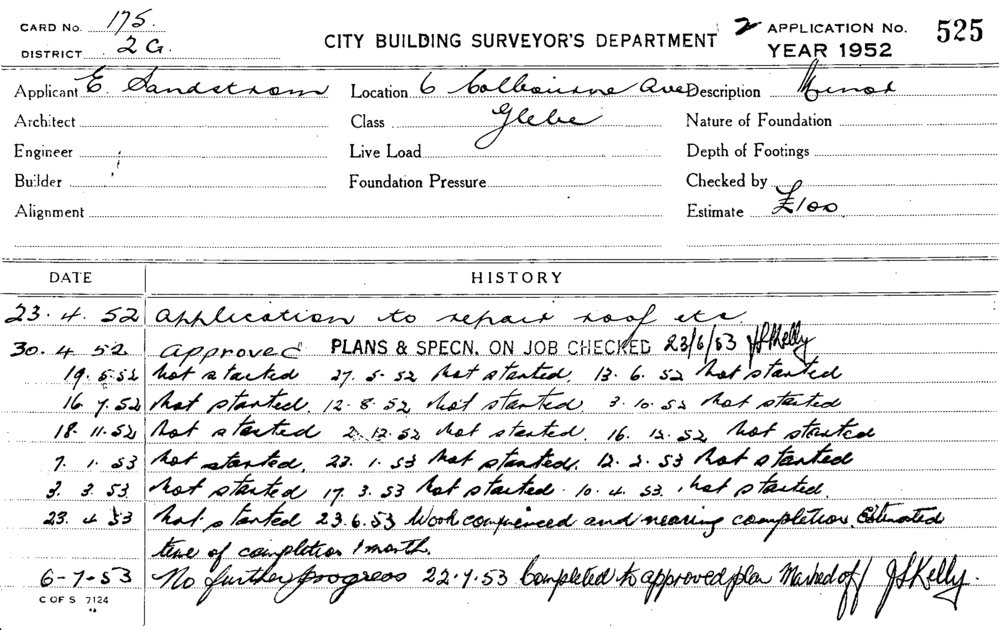 CARD No. 175.
DISTRICT 2 G.
CITY BUILDING SURVEYOR'S DEPARTMENT
2 APPLICATION No. 525
YEAR 1952
Applicant E. Sandstrom Location 6 Colbourne Ave Description Minor
Architect Class Glebe Nature of Foundation
Engineer Live Load Depth of Footings
Builder Foundation Pressure Checked by
Alignment Estimate £100
DATE HISTORY
23. 4. 52 Application to repair roof etc
30. 4 52 Approved PLANS & SPECN. ON JOB CHECKED 23/6/53 J S Kelly
19. 5.52 Not started 27. 5. 52 Not started. 13. 6. 52 Not started
16. 7. 52 Not started. 12. 8. 52 Not started. 3. 10. 52 Not started
18. 11. 52 Not started 2. 12. 52 Not started. 16. 12. 52 Not started
7. 1. 53 Not started. 22. 1. 53 Not started. 12. 2. 53 Not started
3. 3. 53 Not started 17. 3. 53 Not started. 10. 4. 53. Not started.
23. 4 53 Not started 23.6.53 Work commenced and nearing completion. Estimated
time of completion 1 month.
6-7-53 No further progress 22.7.53 Completed to approved plan Marked off J S Kelly.
C OF S 7124